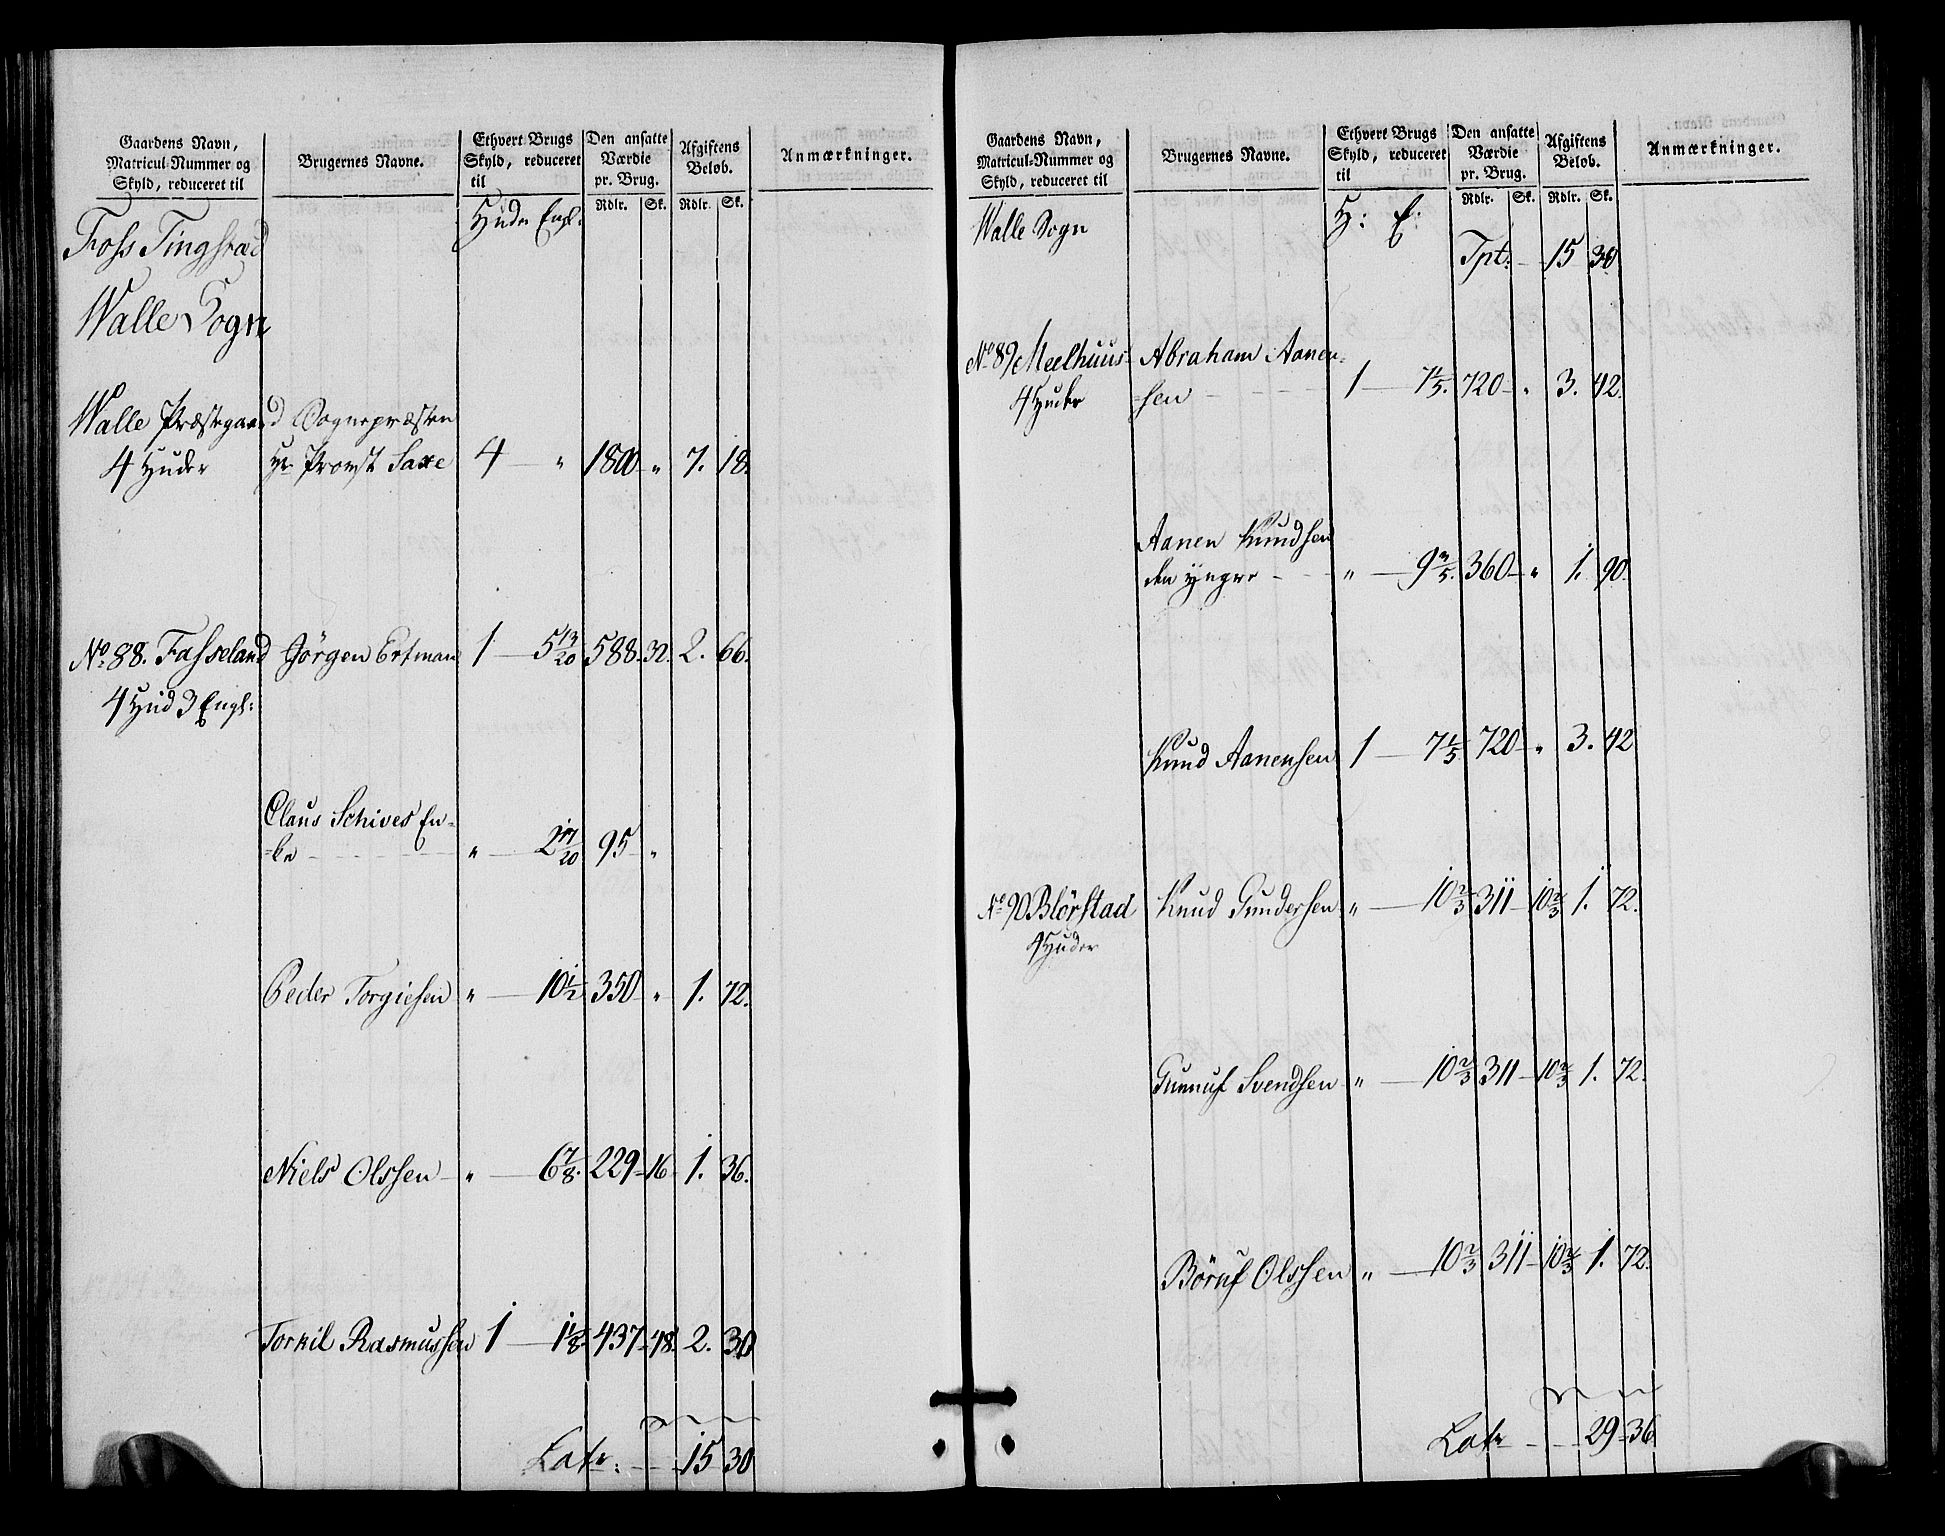 Gaardens Navn, Matricul-Nummer og Skyld, reduceret til | Brugernes Navne. | Ethvert Brugs Skyld, reduceret til | Den ansatte Værdie pr. Brug. | Afgiftens Beløb. | Anmærkninger.
Rdlr. Sk. Rdlr. Sk.
Huder Engl:
Foss Tingstæd
Walle Sogn
Walle Præstegaard Sognepræsten
4 Huder Hr Provst Saxe 4 — " 1800 " 7. 18.
No 88. Fasseland Jörgen Ertman 1 — 5 13/20 588. 32. 2. 66.
4 Hud 3 Engl:
Claus Schives En-
=ke " — 2 17/20 95 "
Peder Torgiesen " — 10 1/2 350 " 1. 72.
Niels Olssen " — 6 7/8. 229 16 1. 36.
Torkil Rasmussen 1 — 1 1/8 437 48. 2. 30
Latr: 15 30
Gaardens Navn, Matricul-Nummer og Skyld, reduceret til | Brugernes Navne. | Ethvert Brugs Skyld, reduceret til | Den ansatte Værdie pr. Brug. | Afgiftens Beløb. | Anmærkninger.
Rdlr. Sk. Rdlr. Sk.
Walle Sogn H: E:
Tpt: 15 30
No 89 Meelhuus Abraham Aanen=
4 Huder =sen 1 — 7 1/5. 720 " 3. 42.
Aanen Knudsen
den yngre " — 9 3/5. 360 " 1. 90.
Knud Aanensen 1 — 7 1/5 720 " 3. 42
No 90 Blörstad Knud Gundersen " — 10 2/3 311 10 2/3 1. 72.
4 Huder
Gunnuf Svendsen " — 10 2/3 311 10 2/3 1. 72.
Böruf Olssen " — 10 2/3 311 10 2/3 1. 72.
Latr 29 36